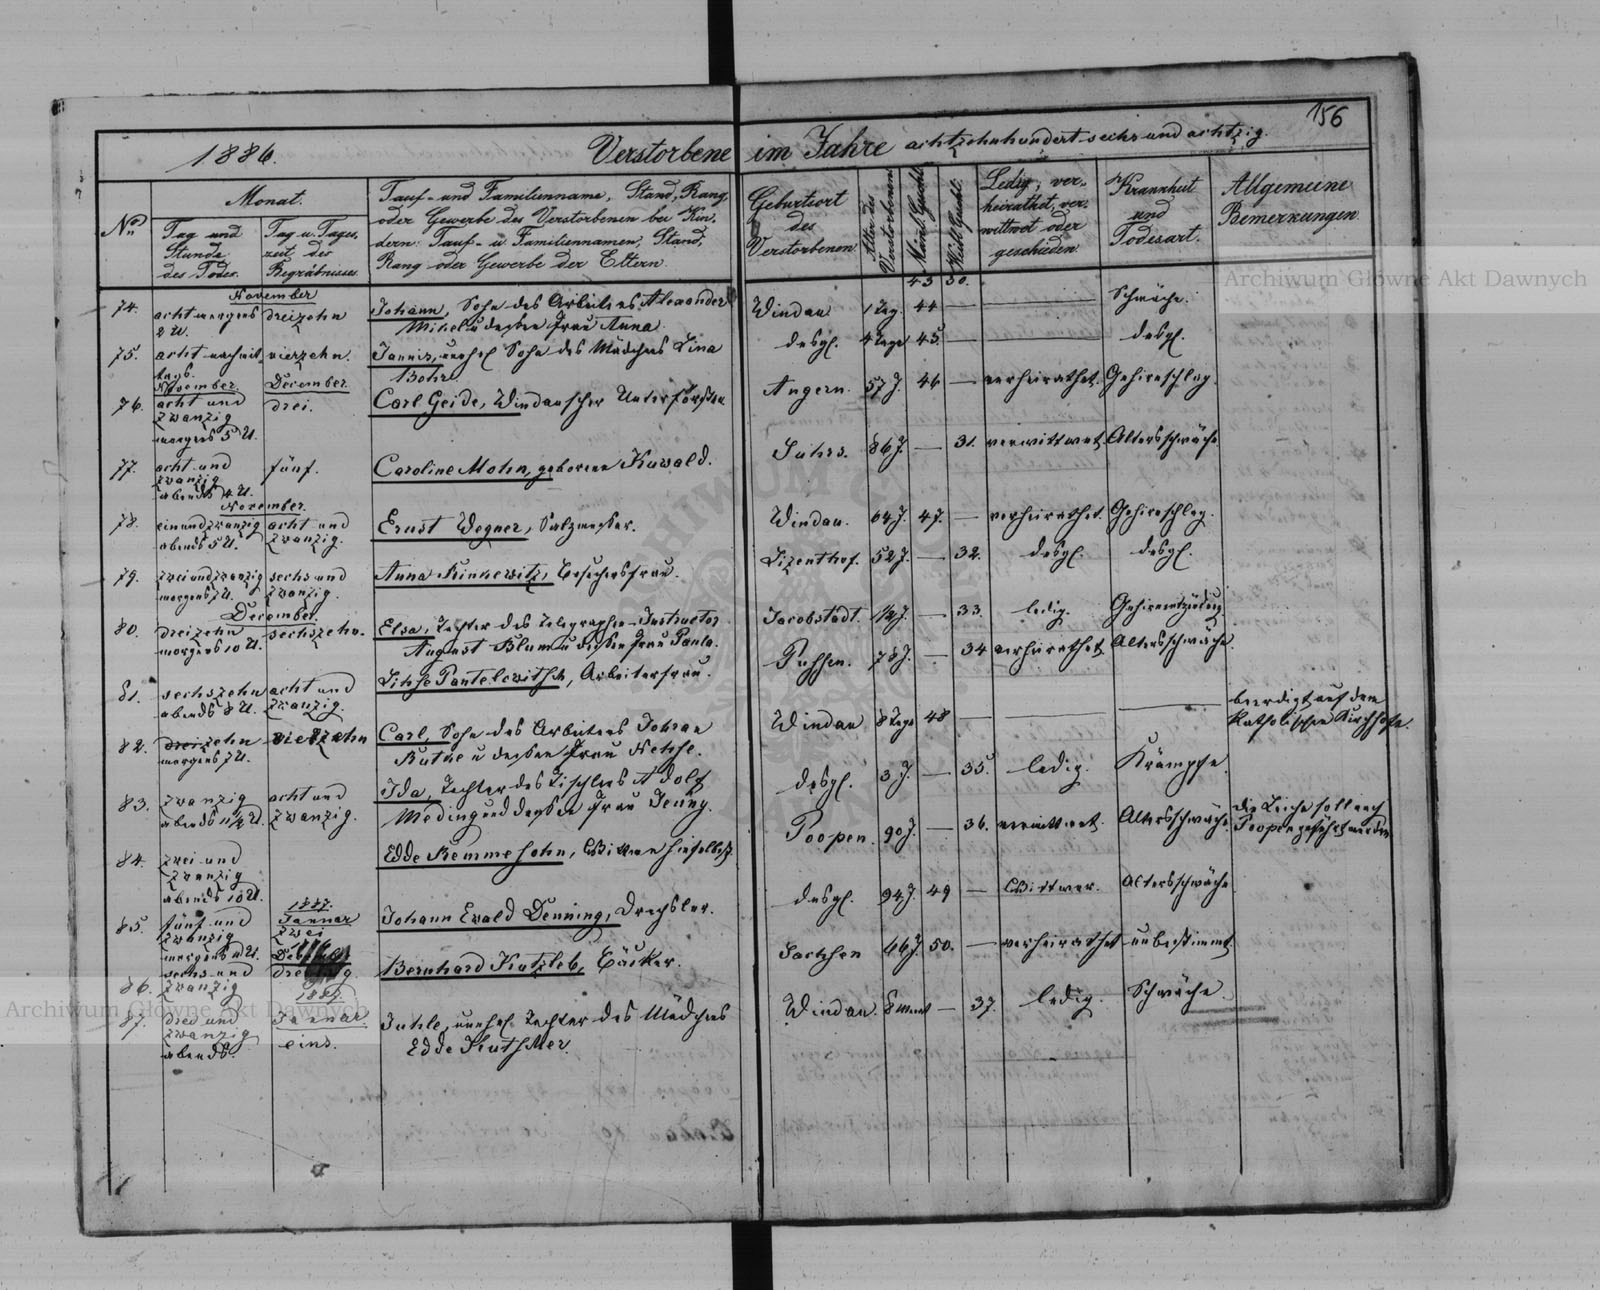 156
1886.
Verstorbene im Jahre achtzehnhundert sechs und achtzig.
No
Monat.
Tag und
Stunde
des Todes.
Tag u. Tages-
zeit des
Begräbnisses.
Tauf- und Familienname, Stand, Rang
oder Gewerbe des Verstorbenen bei Kin-
dern: Tauf- u Familiennamen, Stand,
Rang oder Gewerbe der Eltern.
Geburtsort
des
Verstorbenen.
Alter des
Verstorbenen
Männl. Geschl.
Weibl. Geschl.
Ledig, ver-
heirathet, ver-
wittwet oder
geschieden
Krankheit
und
Todesart.
Allgemeine
Bemerkungen
43 30.
November
74. acht morgens dreizehn Johann, Sohn des Arbeiters Alexander Windau 1 Tag. 44 — — Schwäche.
2 U. Mikel u dessen Frau Anna
75. acht nachmit- vierzehn. Jannis, unehel Sohn des Mädchens Lina desgl. 4 Tage 45 — — desgl.
tags. Bohr.
November. December.
76. acht und drei. Carl Geide, Windauscher Unterförster Angern. 57 J. 46 — verheirathet. Gehirnschlag.
zwanzig
morgens 5 U.
77. acht und fünf. Caroline Mohn, geborene Kuwald. 86 J. — 31. verwittwet Altersschwäche
zwanzig
abends 4 U.
November.
78. einundzwanzig acht und Ernst Wegner, Salzmesser. Windau. 64 J. 47. — verheirathet. Gehirnschlag.
abends 5 U. zwanzig.
79. zwei und zwanzig sechs und Anna 52 J. — 32. desgl. desgl.
morgens 7 U. zwanzig.
December.
80. dreizehn sechszehn. Elsa, Tochter des Telegraphen-Instructor Jacobstadt. 1/2 J. — 33. ledig.
morgens 10 U. August Blum u dessen Frau Paula.
81. sechszehn acht und Lihse Pantelewitsch, Arbeiterfrau. Puhssen. 78 J. — 34 verheirathet Altersschwäche.
abends 8 U. zwanzig.
82. dreizehn vierzehn Carl, Sohn des Arbeiters Johann Windau 8 Tage 48 — — — beerdigt auf dem
morgens 7 U. Kuthe u dessen Frau katholischen Kirchhofe.
83. zwanzig acht und Ida, Tochter des Tischlers Adolf desgl. 3 J. — 35. ledig. Krämpfe.
abends 11 1/2 U. zwanzig. Meding und dessen Frau Jenny.
84. zwei und Edde Remmesohn, Wittwe hieselbst. Poopen. 90 J. — 36. verwittwet. Altersschwäche. die Leiche soll nach
zwanzig Poopen geführt werden
abends 10 U.
1887.
Januar
85. fünf und zwei Johann Ewald Denning, Drechsler. desgl. 94 J. 49 — Wittwer. Altersschwäche
zwanzig
morgens U.
86. sechs und Bernhard Kutzleb, Bäcker. Sachsen 46 J. 50. — verheirathet unbestimmt.
zwanzig
1887.
Januar
87. drei und eins. unehel Tochter des Mädchens Windau. 8 Monat — 37. ledig. Schwäche.
zwanzig Edde
abends.
Archiwum Główne Akt Dawnych
Archiwum Główne Akt Dawnych